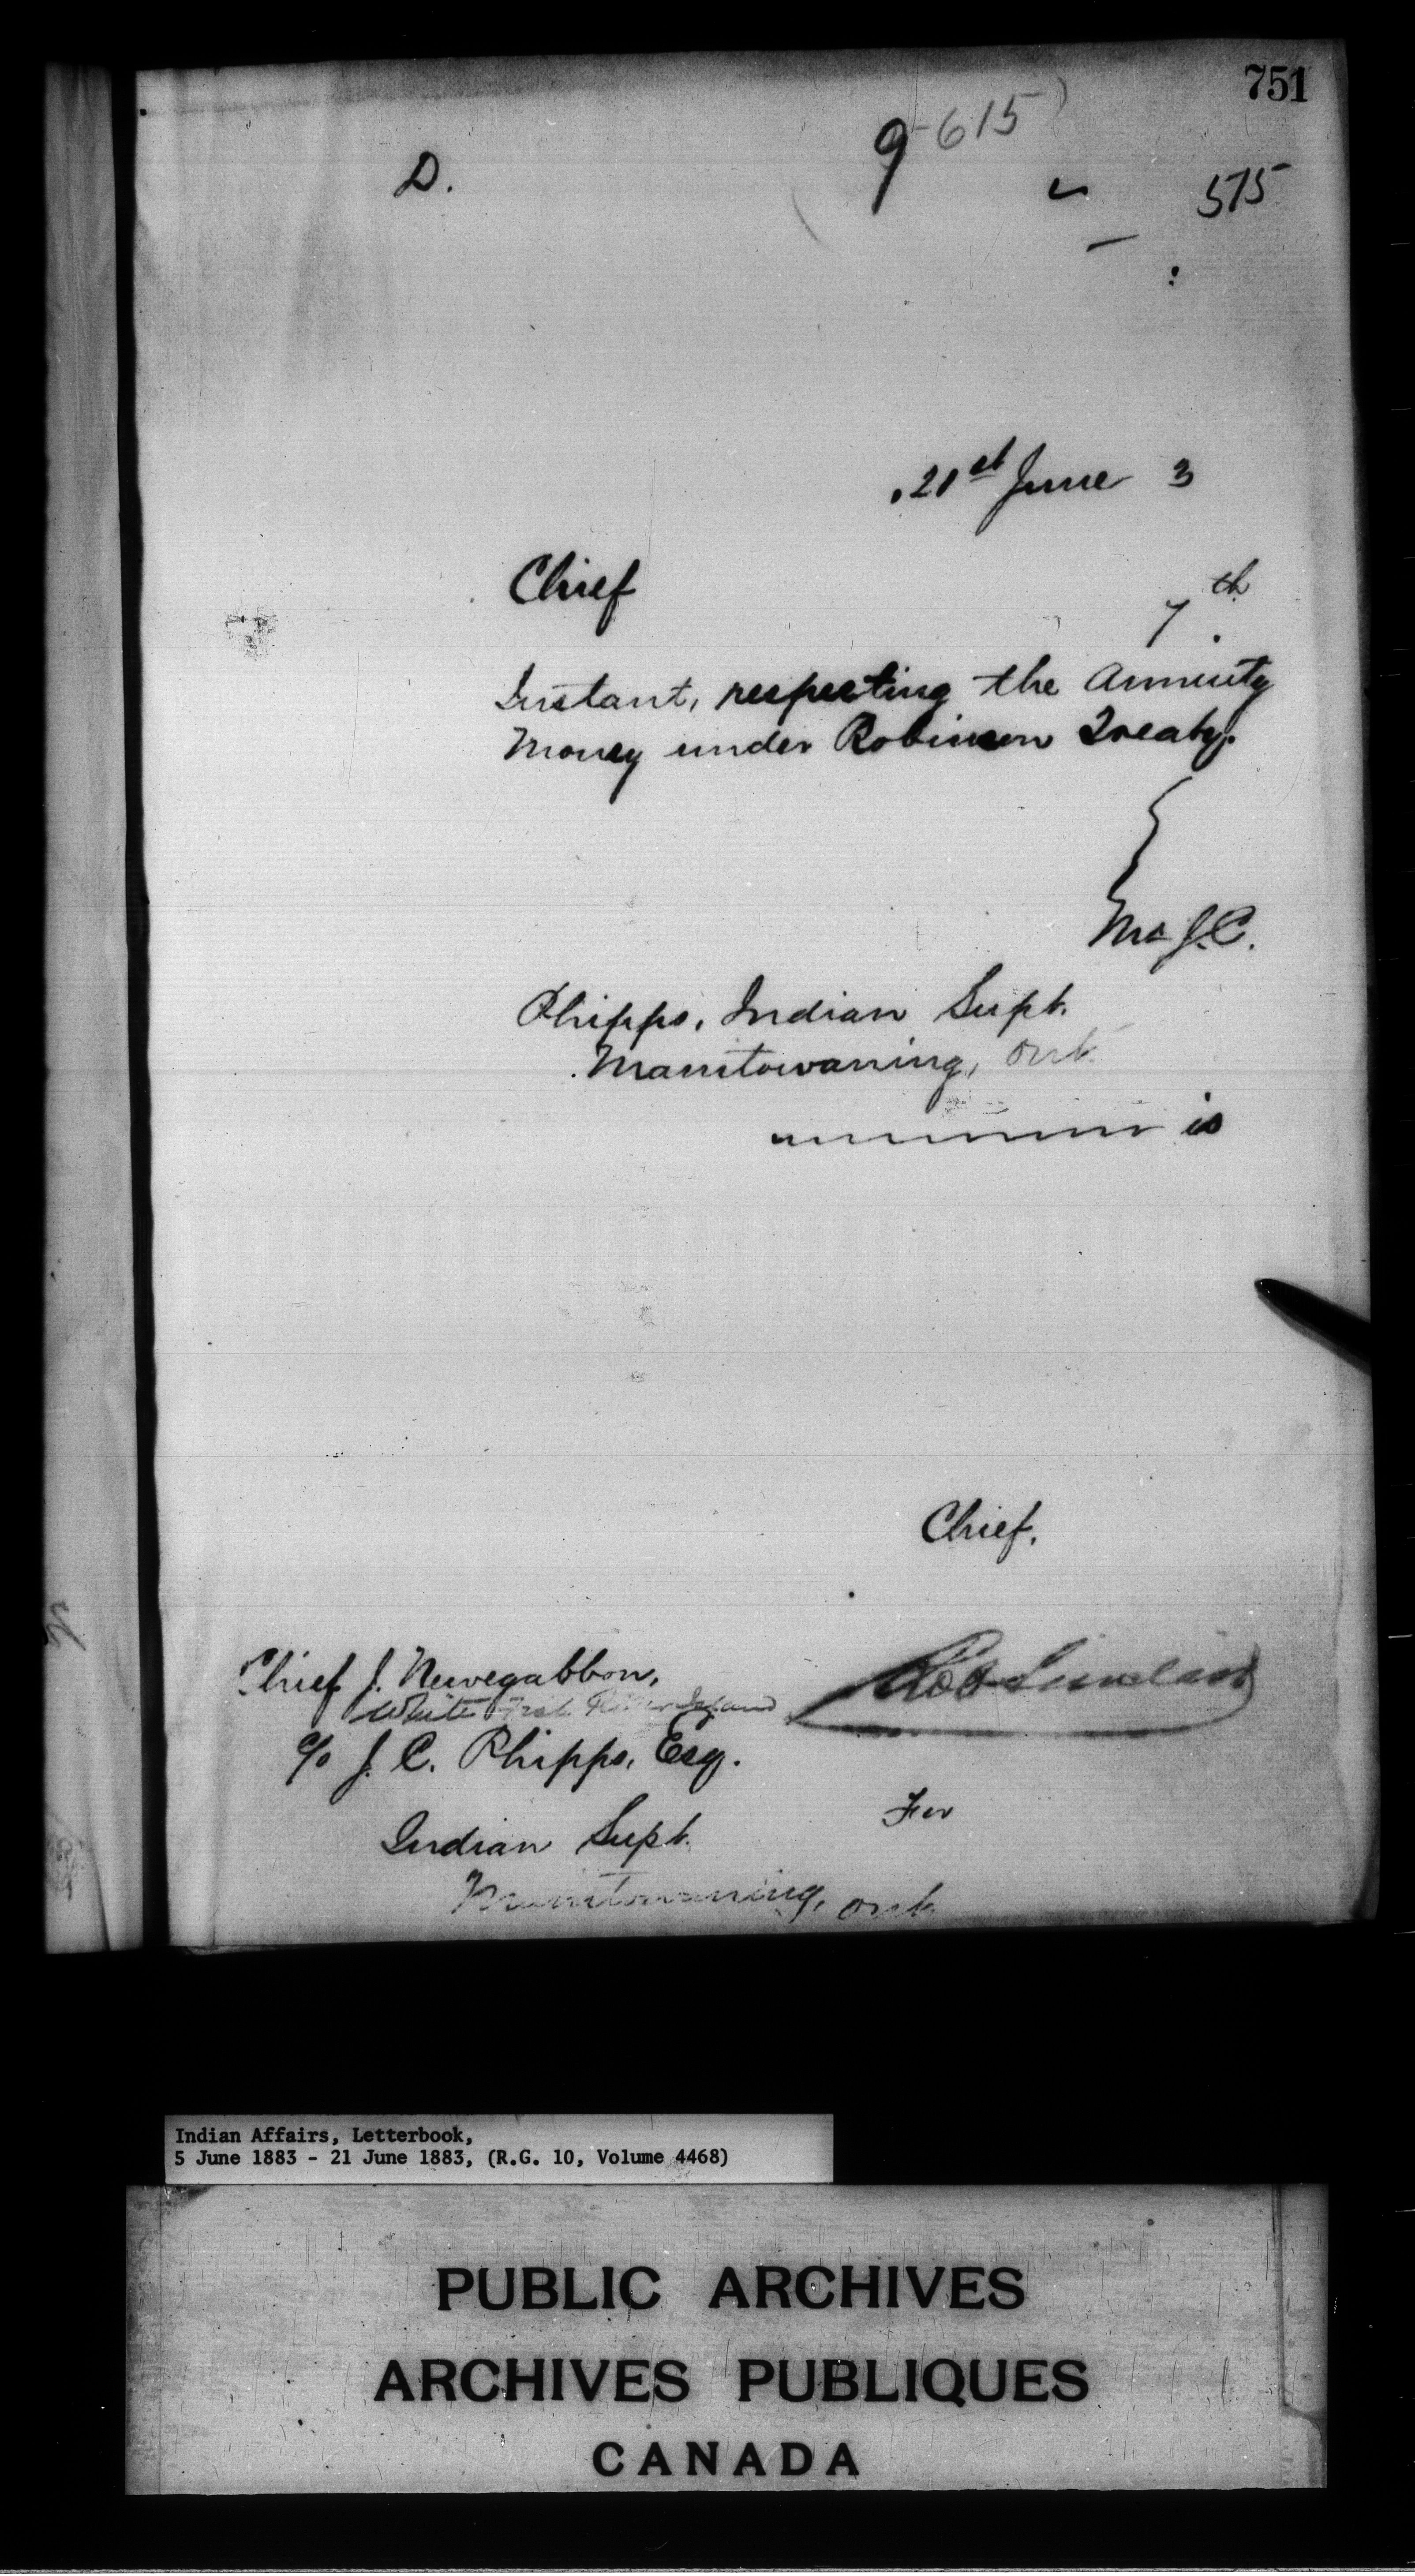 751
9-615
D.
575
21st June 3
Chief
7th
Instant, respecting the Annuity
Money under Robinson Treaty.
Mr J.C.
Phipps, Indian Supt.
Manitowaning, Ont.
is
Chief.
Chief J. Newegabbon,
White Fish River Island
c/o J. C. Phipps, Esq.
For
Indian Supt.
Manitowaning, Ont.
Indian Affairs, Letterbook,
5 June 1883 - 21 June 1883, (R.G. 10, Volume 4468)
PUBLIC ARCHIVES
ARCHIVES PUBLIQUES
CANADA